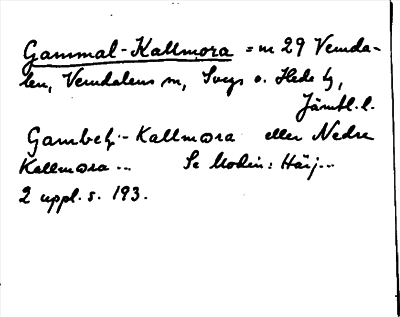 Gammal-Kallmora = m 29 Vemda-
len, Vemdalens sn, Svegs o. Hede tg,
Jämtl. l.
Gambel-Kallmora eller Nedre
Kallmora ... Se Modin: Härj...
2 uppl. s. 193.